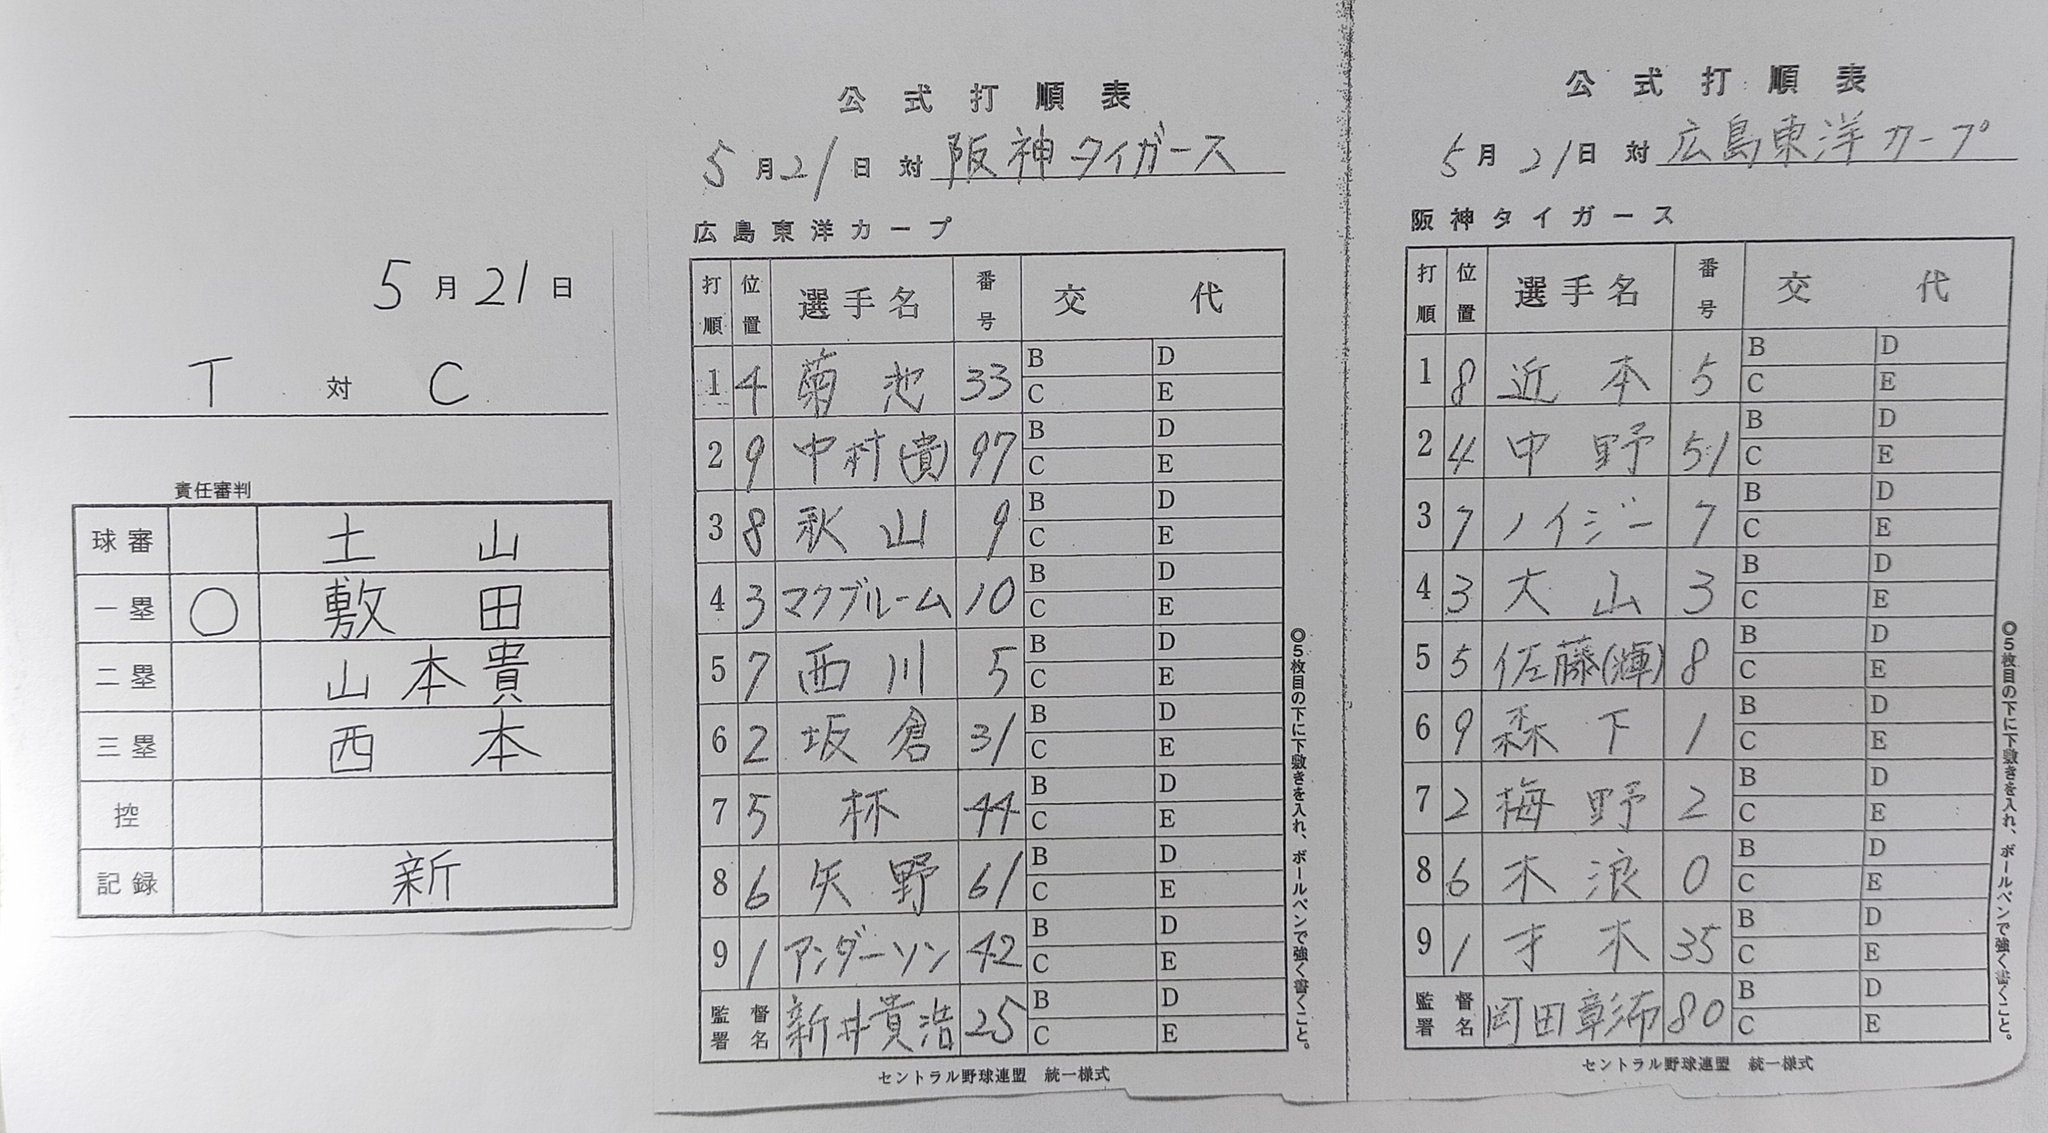 5月21日
T 対 C
責任審判
球審 土山
一塁 ○ 敷田
二塁 山本貴
三塁 西本
控
記録 新
公式打順表
5月21日 対 阪神タイガース
広島東洋カープ
打順 位置 選手名 番号 交代
1 4 菊池 33 B D C E
2 9 中村(貴) 97 B D C E
3 8 秋山 9 B D C E
4 3 マクブルーム 10 B D C E
5 7 西川 5 B D C E
6 2 坂倉 31 B D C E
7 5 林 44 B D C E
8 6 矢野 61 B D C E
9 1 アンダーソン 42 B D C E
監督署名 新井貴浩 25 B D C E
◎5枚目の下に下敷きを入れ、ボールペンで強く書くこと。
セントラル野球連盟 統一様式
公式打順表
5月21日 対 広島東洋カープ
阪神タイガース
打順 位置 選手名 番号 交代
1 8 近本 5 B D C E
2 4 中野 51 B D C E
3 7 ノイジー 7 B D C E
4 3 大山 3 B D C E
5 5 佐藤(輝) 8 B D C E
6 9 森下 1 B D C E
7 2 梅野 2 B D C E
8 6 木浪 0 B D C E
9 1 才木 35 B D C E
監督署名 岡田彰布 80 B D C E
◎5枚目の下に下敷きを入れ、ボールペンで強く書くこと。
セントラル野球連盟 統一様式